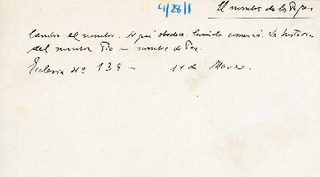 4/28/1
El nombre de los Papas
Cambia el nombre. A qué obedece. Cuándo comenzó. La historia
del nombre Pío — nombre de Paz.
Ecclesia nº 139 — 11 de Marzo.